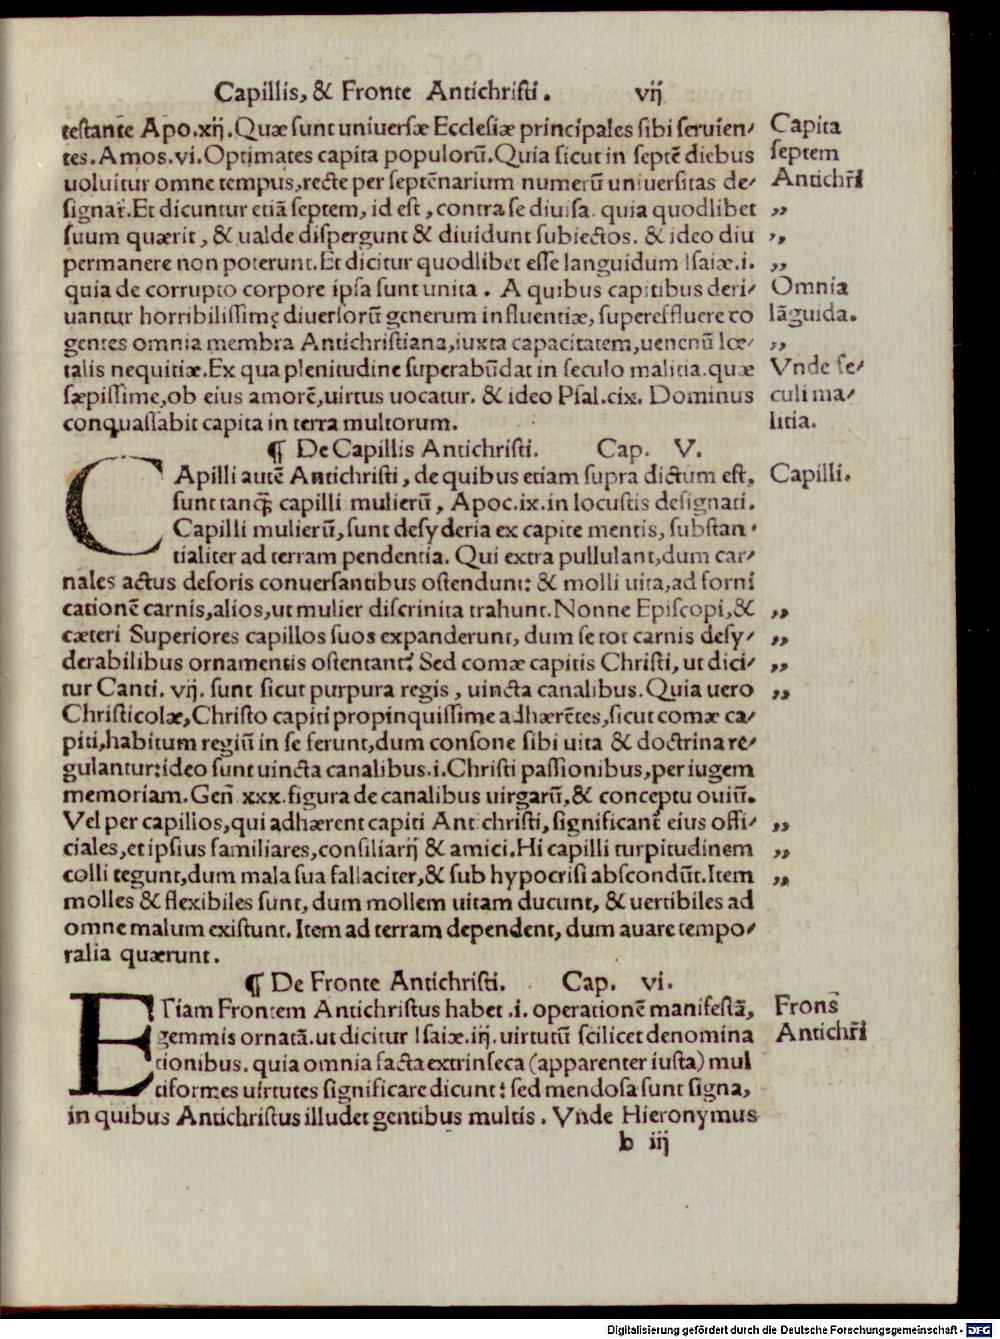 Capillis, & Fronte Antichristi. vij
testante Apo.xij. Quæ sunt uniuersæ Ecclesiæ principales sibi seruien/
tes. Amos.vi. Optimates capita populorū. Quia sicut in septē diebus
uoluitur omne tempus, recte per septēnarium numerū uniuersitas de/
signat̄. Et dicuntur etiā septem, id est, contra se diuisa. quia quodlibet
suum quærit, & ualde dispergunt & diuidunt subiectos. & ideo diu
permanere non poterunt. Et dicitur quodlibet esse languidum Isaiæ.i.
quia de corrupto corpore ipsa sunt unita. A quibus capitibus deri/
uantur horribilissimę diuersorū generum influentiæ, supereffluere co
gentes omnia membra Antichristiana, iuxta capacitatem, uenenū lœ/
talis nequitiæ. Ex qua plenitudine superabūdat in seculo malitia. quæ
sæpissime, ob eius amorē, uirtus uocatur. & ideo Psal.cix. Dominus
conquassabit capita in terra multorum.
Capita
septem
Antichr̄i
„
„
„
Omnia
lāguida.
„
Vnde se/
culi ma/
litia.
¶ De Capillis Antichristi. Cap. V.
CApilli autē Antichristi, de quibus etiam supra dictum est,
sunt tanq̄ capilli mulierū, Apoc.ix. in locustis designati.
Capilli mulierū, sunt desyderia ex capite mentis, substan/
tialiter ad terram pendentia. Qui extra pullulant, dum car/
nales actus deforis conuersantibus ostendunt: & molli uita, ad forni
cationē carnis, alios, ut mulier discrinita trahunt. Nonne Episcopi, &
cæteri Superiores capillos suos expanderunt, dum se tot carnis desy/
derabilibus ornamentis ostentant? Sed comæ capitis Christi, ut dici/
tur Canti. vij. sunt sicut purpura regis, uincta canalibus. Quia uero
Christicolæ, Christo capiti propinquissime adhærētes, sicut comæ ca/
piti, habitum regiū in se ferunt, dum consone sibi uita & doctrina re/
gulantur: ideo sunt uincta canalibus .i. Christi passionibus, per iugem
memoriam. Gen̄ xxx. figura de canalibus uirgarū, & conceptu ouiū.
Vel per capillos, qui adhærent capiti Antichristi, significant̄ eius offi/
ciales, et ipsius familiares, consiliarij & amici. Hi capilli turpitudinem
colli tegunt, dum mala sua fallaciter, & sub hypocrisi abscondūt. Item
molles & flexibiles sunt, dum mollem uitam ducunt, & uertibiles ad
omne malum existunt. Item ad terram dependent, dum auare tempo/
ralia quærunt.
Capilli.
„
„
„
„
„
„
„
¶ De Fronte Antichristi. Cap. vi.
ETiam Frontem Antichristus habet .i. operationē manifestā,
gemmis ornatā. ut dicitur Isaiæ.iij. uirtutū scilicet denomina
tionibus. quia omnia facta extrinseca (apparenter iusta) mul
tiformes uirtutes significare dicunt: sed mendosa sunt signa,
in quibus Antichristus illudet gentibus multis. Vnde Hieronymus
Frons
Antichr̄i
b iij
Digitalisierung gefördert durch die Deutsche Forschungsgemeinschaft - DFG